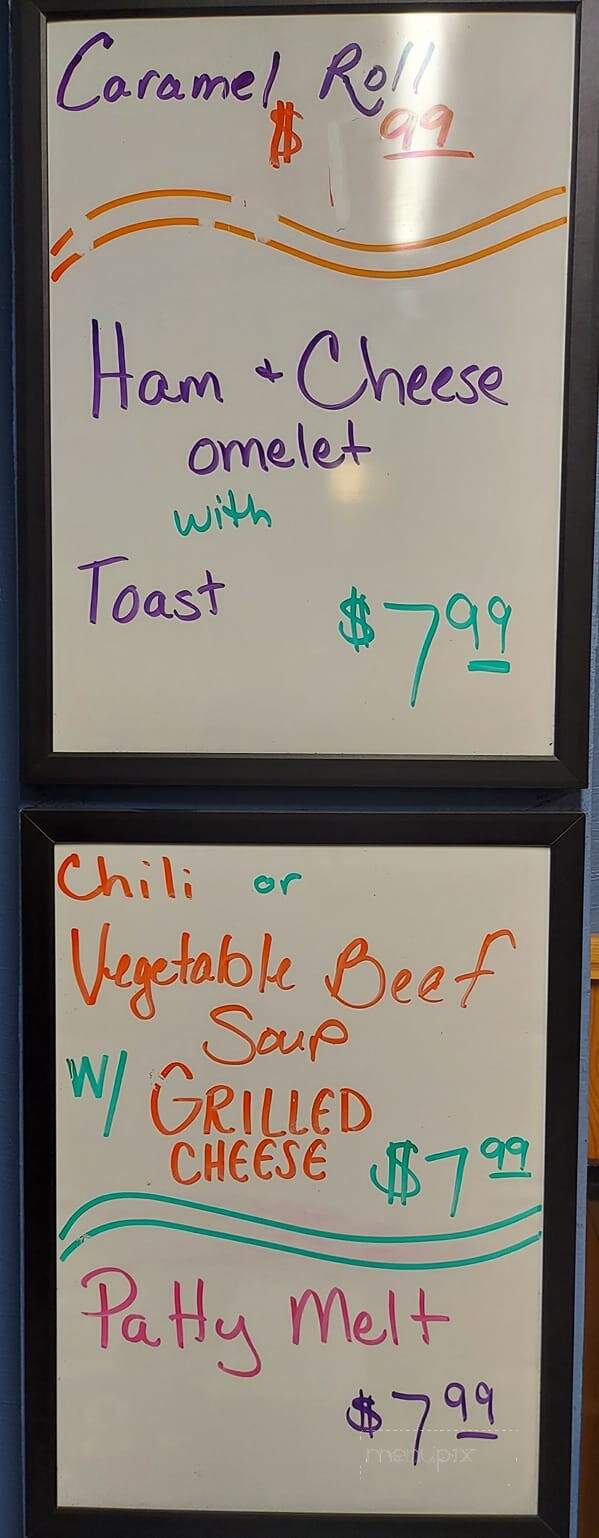 Caramel Roll
$ 99
Ham + Cheese
omelet
with
Toast
$7 99
Chili or
Vegetable Beef
Soup
W/ GRILLED
CHEESE $7 99
Patty Melt
$7 99
menupix